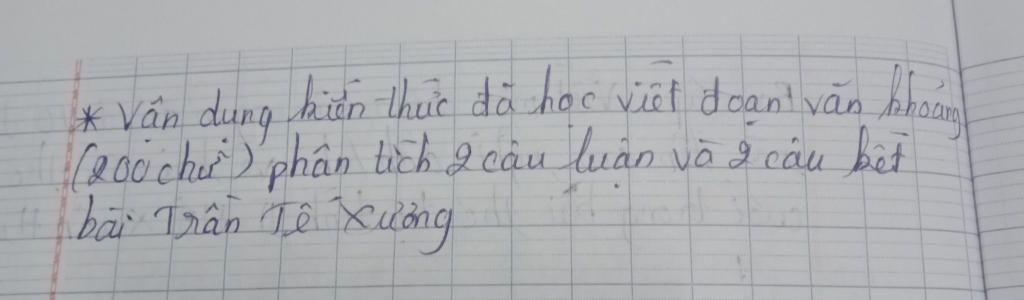 * Vận dụng kiến thức đã học viết đoạn văn khoảng
(200 chữ) phân tích 2 câu luận và 2 câu kết
bài Trần Tế Xương